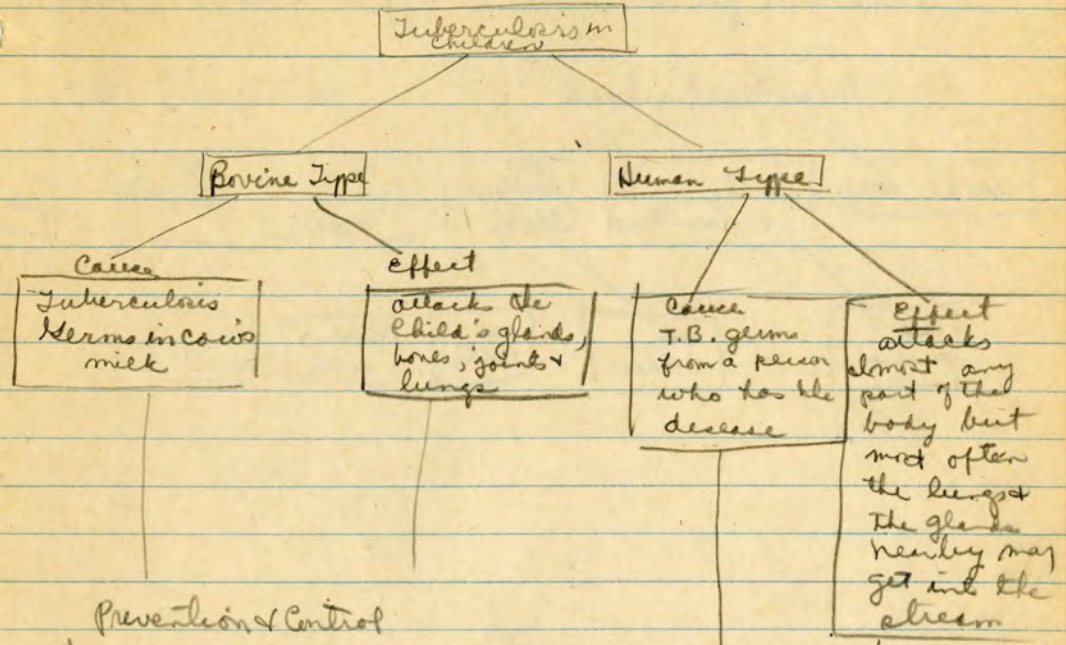 Tuberculosis in
Children
Bovine Type
Human Type
Cause
Tuberculosis
Germs in cow's
milk
Effect
attacks the
Child's glands,
bones, joints &
lungs
Cause
T.B. germs
from a person
who has the
disease
Effect
attacks
almost any
part of the
body but
most often
the lungs &
the glands
nearby may
get into the
stream
Prevention & Control